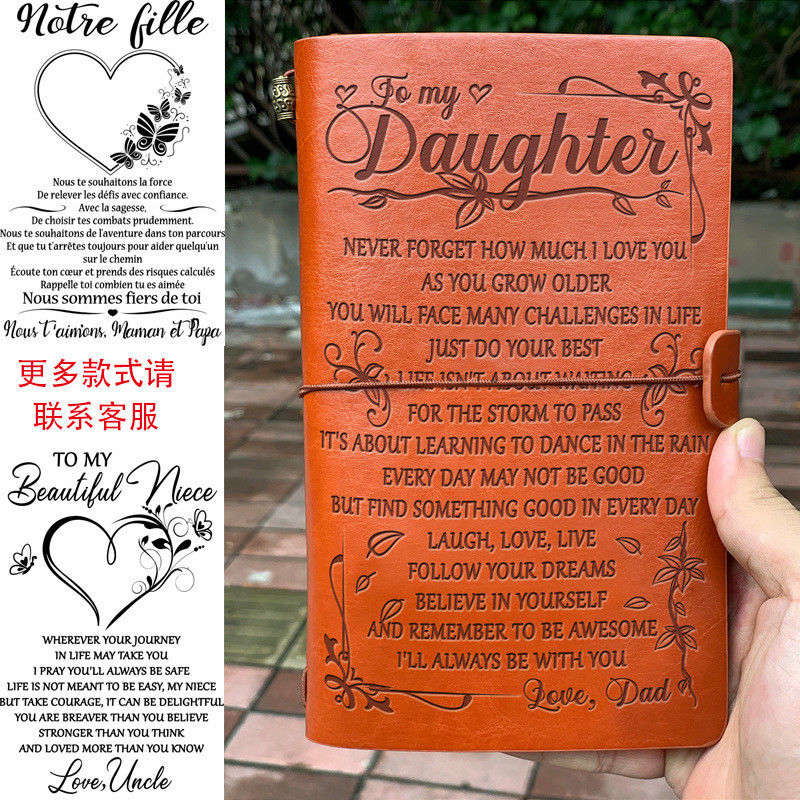 Notre fille
Nous te souhaitons la force
De relever les défis avec confiance.
Avec la sagesse,
De choisir tes combats prudemment.
Nous te souhaitons de l'aventure dans ton parcours
Et que tu t'arrêtes toujours pour aider quelqu'un
sur le chemin
Écoute ton cœur et prends des risques calculés
Rappelle toi combien tu es aimée
Nous sommes fiers de toi
Nous t'aimions, Maman et Papa
更多款式请
联系客服
TO MY
Beautiful Niece
WHEREVER YOUR JOURNEY
IN LIFE MAY TAKE YOU
I PRAY YOU'LL ALWAYS BE SAFE
LIFE IS NOT MEANT TO BE EASY, MY NIECE
BUT TAKE COURAGE, IT CAN BE DELIGHTFUL
YOU ARE BREAVER THAN YOU BELIEVE
STRONGER THAN YOU THINK
AND LOVED MORE THAN YOU KNOW
Love, Uncle
To my
Daughter
NEVER FORGET HOW MUCH I LOVE YOU
AS YOU GROW OLDER
YOU WILL FACE MANY CHALLENGES IN LIFE
JUST DO YOUR BEST
LIFE ISN'T ABOUT WAITING
FOR THE STORM TO PASS
IT'S ABOUT LEARNING TO DANCE IN THE RAIN
EVERY DAY MAY NOT BE GOOD
BUT FIND SOMETHING GOOD IN EVERY DAY
LAUGH, LOVE, LIVE
FOLLOW YOUR DREAMS
BELIEVE IN YOURSELF
AND REMEMBER TO BE AWESOME
I'LL ALWAYS BE WITH YOU
Love, Dad